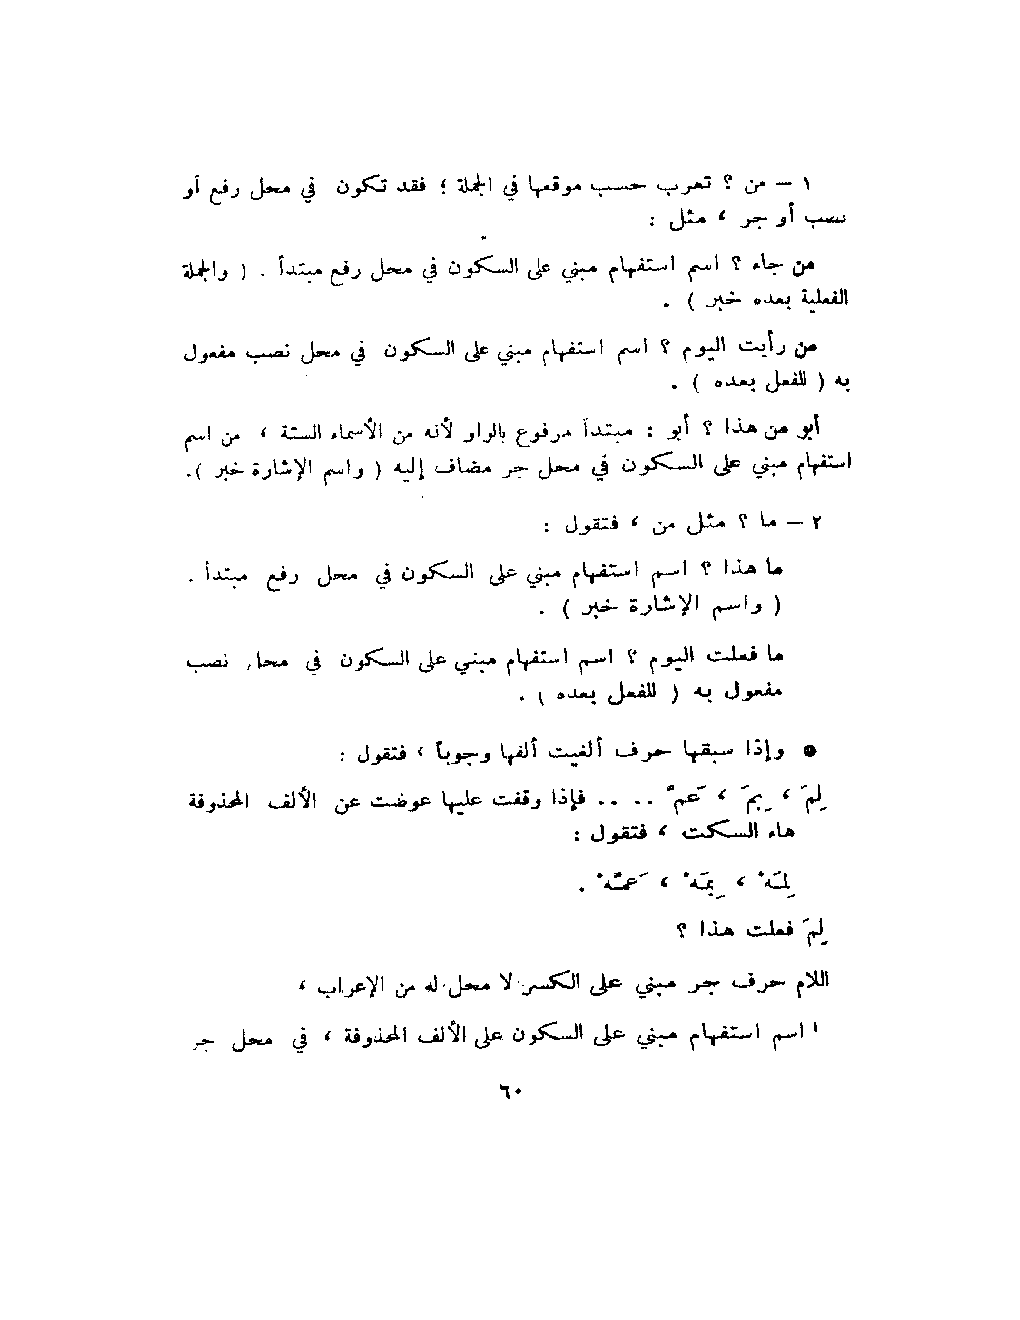 ١ – من ؟ تعرب حسب موقعها في الجملة ؛ فقد تكون في محل رفع أو
نصب أو جر ، مثل :
من جاء ؟ اسم استفهام مبني على السكون في محل رفع مبتدأ . ( والجملة
الفعلية بعده خبر ) .
من رأيت اليوم ؟ اسم استفهام مبني على السكون في محل نصب مفعول
به ( للفعل بعده ) .
أبو من هذا ؟ أبو : مبتدأ مرفوع بالواو لأنه من الأسماء الستة ، من اسم
استفهام مبني على السكون في محل جر مضاف إليه ( واسم الإشارة خبر ).
٢ – ما ؟ مثل من ، فتقول :
ما هذا ؟ اسم استفهام مبني على السكون في محل رفع مبتدأ .
( واسم الإشارة خبر ) .
ما فعلت اليوم ؟ اسم استفهام مبني على السكون في محل نصب
مفعول به ( للفعل بعده ) .
● وإذا سبقها حرف ألغيت ألفها وجوباً ، فتقول :
لِمَ ، بِمَ ، عَمَّ .. .. فإذا وقفت عليها عوضت عن الألف المحذوفة
هاء السكت ، فتقول :
لِمَهْ ، بِمَهْ ، عَمَّهْ .
لِمَ فعلت هذا ؟
اللام حرف جر مبني على الكسر لا محل له من الإعراب ،
اسم استفهام مبني على السكون على الألف المحذوفة ، في محل جر
٦٠